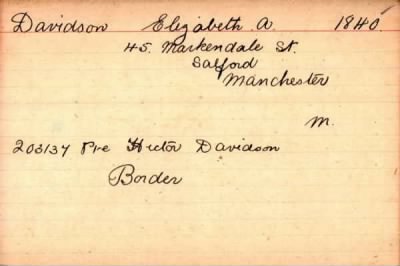 Davidson Elizabeth A. 1840.
45. Markendale St.
Salford
Manchester
M.
203137 Pve Hector Davidson
Border